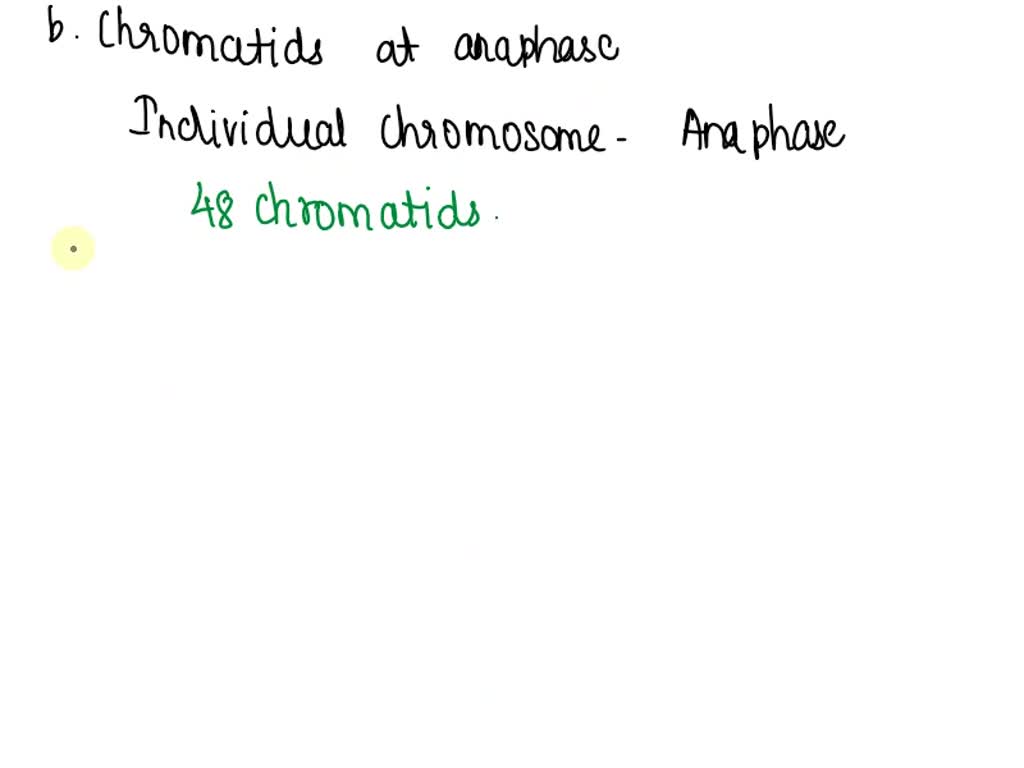 b. Chromatids at anaphase
Individual chromosome - Anaphase
48 chromatids.